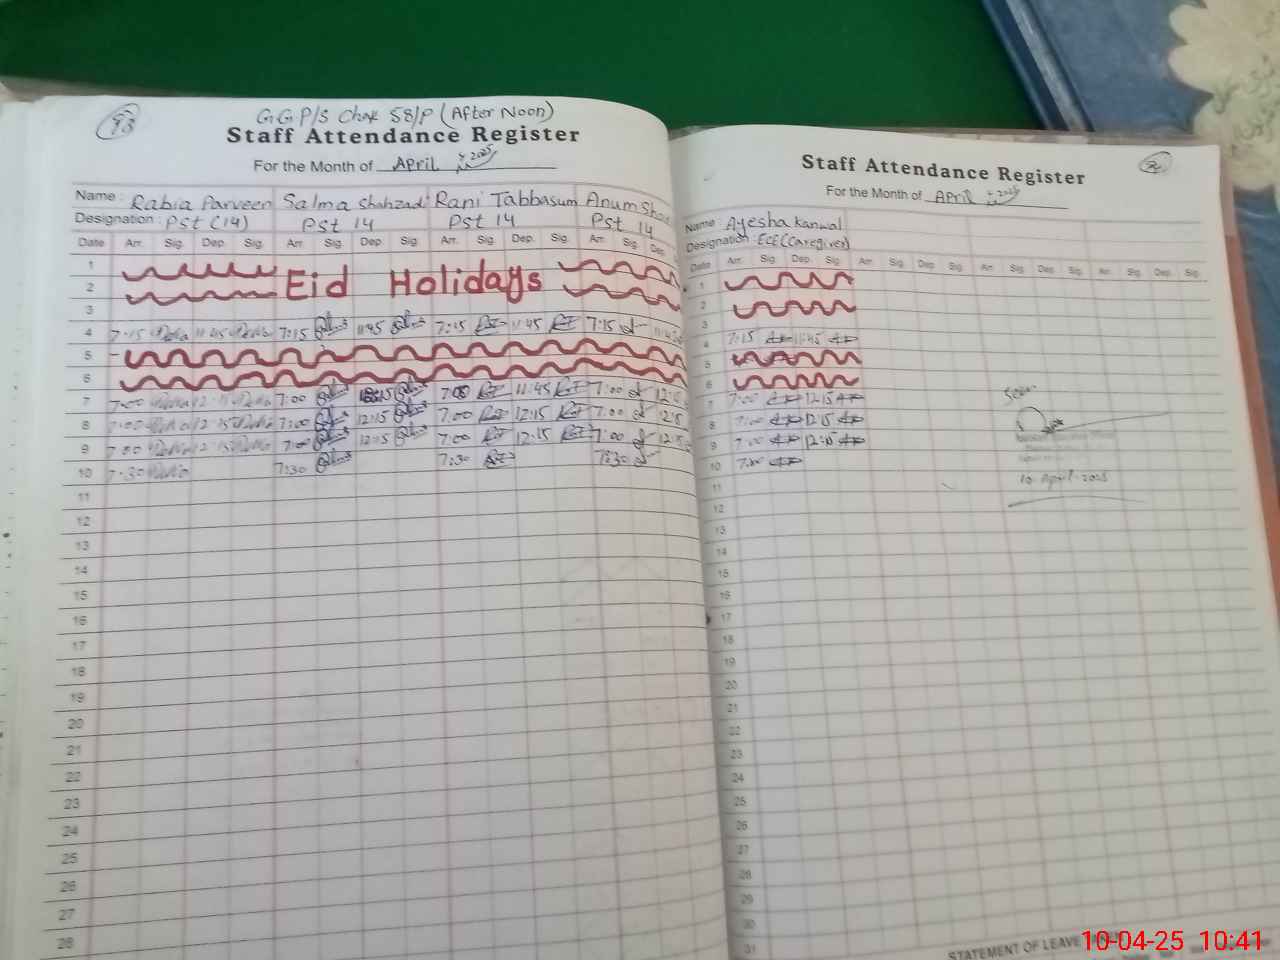 93
G.G.P/S Chak 58/P (After Noon)
Staff Attendance Register
For the Month of April 2025
Name : Rabia Parveen Salma Shahzadi Rani Tabbasum Anum
Designation : Pst (14) Pst 14 Pst 14 Pst 14
Date Arr. Sig. Dep. Sig. Arr. Sig. Dep. Sig. Arr. Sig. Dep. Sig. Arr. Sig. Dep.
1
2 Eid Holidays
3
4 7:15 11:45 7:15 11:45 7:15 11:45 7:15
5
6
7 7:00 12:15 7:00 7:00 11:45 7:00
8 7:00 12:15 7:00 12:15 7:00 12:15 7:00
9 7:00 12:15 7:00 12:15 7:00 12:15 7:00
10 7:30 7:30 7:30 7:30
11
12
13
14
15
16
17
18
19
20
21
22
23
24
25
26
27
28
Staff Attendance Register
For the Month of April 2025
Name : Ayesha Kanwal
Designation : ECE (Caregiver)
Date Arr. Sig. Dep. Sig. Arr. Sig. Dep. Sig. Arr. Sig. Dep. Sig. Arr. Sig. Dep. Sig.
1
2
3
4 7:15 11:45
5
6
7 7:00 12:15
8 7:00 12:15
9 7:00 12:15
10 7:00
Seen
10 April 2025
11
12
13
14
15
16
17
18
19
20
21
22
23
24
25
26
27
28
29
30
31
STATEMENT OF LEAVE
10-04-25 10:41